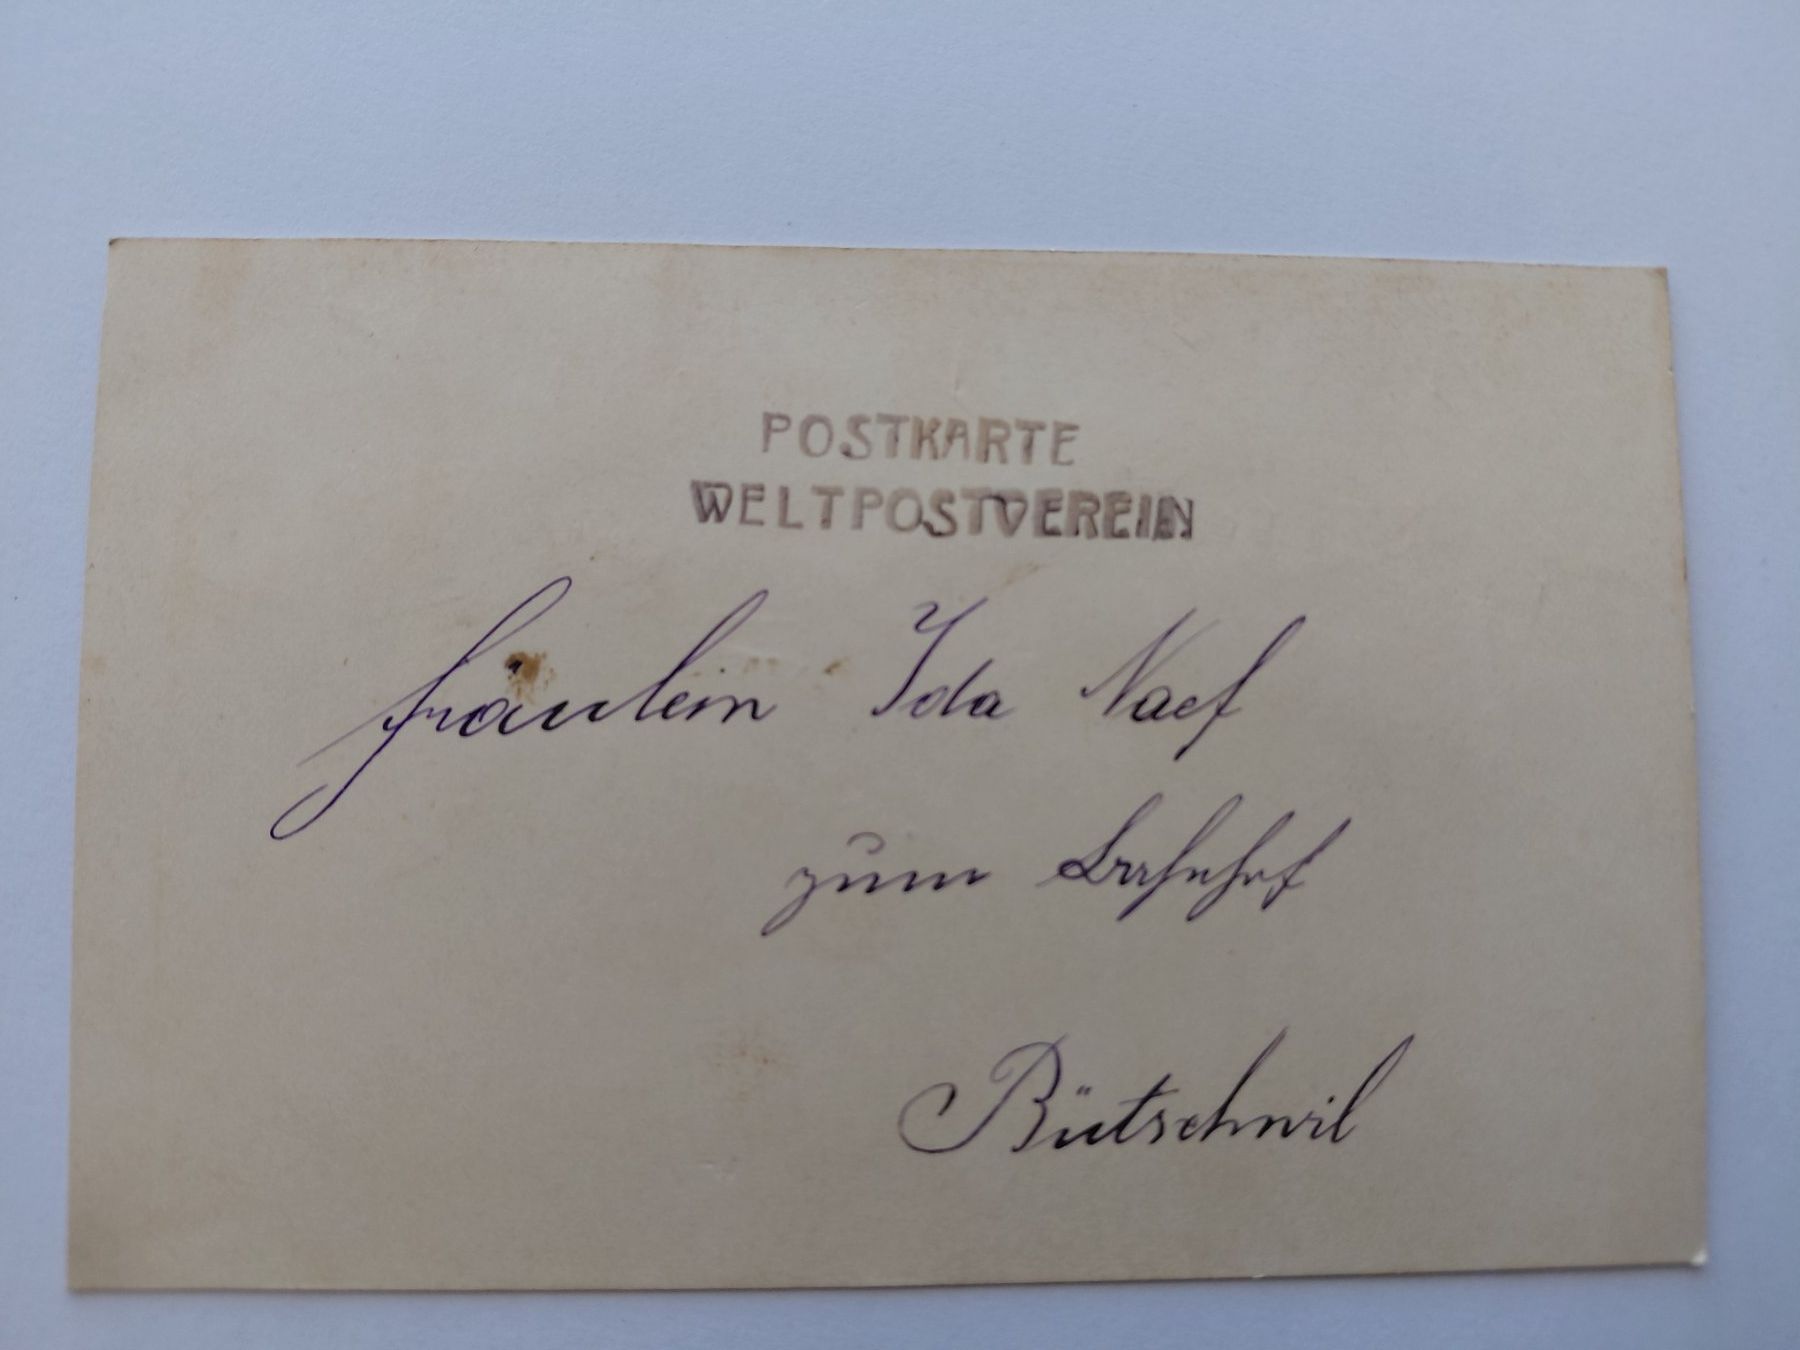 POSTKARTE
WELTPOSTVEREIN
Fräulein Ida Naef
zum Bahnhof
Bütschwil